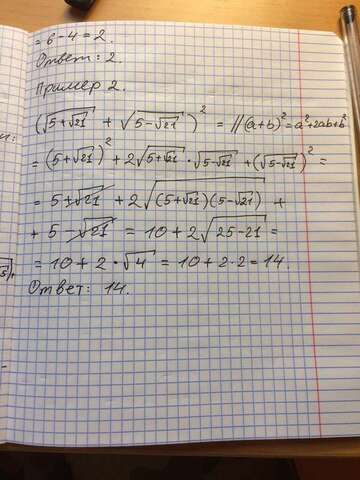 = 6 - 4 = 2.
Ответ: 2.
Пример 2.
(√5+√21 + √5-√21)² = //(a+b)² = a²+2ab+b²
= (5+√21)² + 2√5+√21 · √5-√21 + (√5-√21)² =
= 5+√21 + 2√(5+√21)(5-√21) +
+ 5 - √21 = 10 + 2√25-21 =
= 10 + 2 · √4 = 10 + 2·2 = 14.
Ответ: 14.